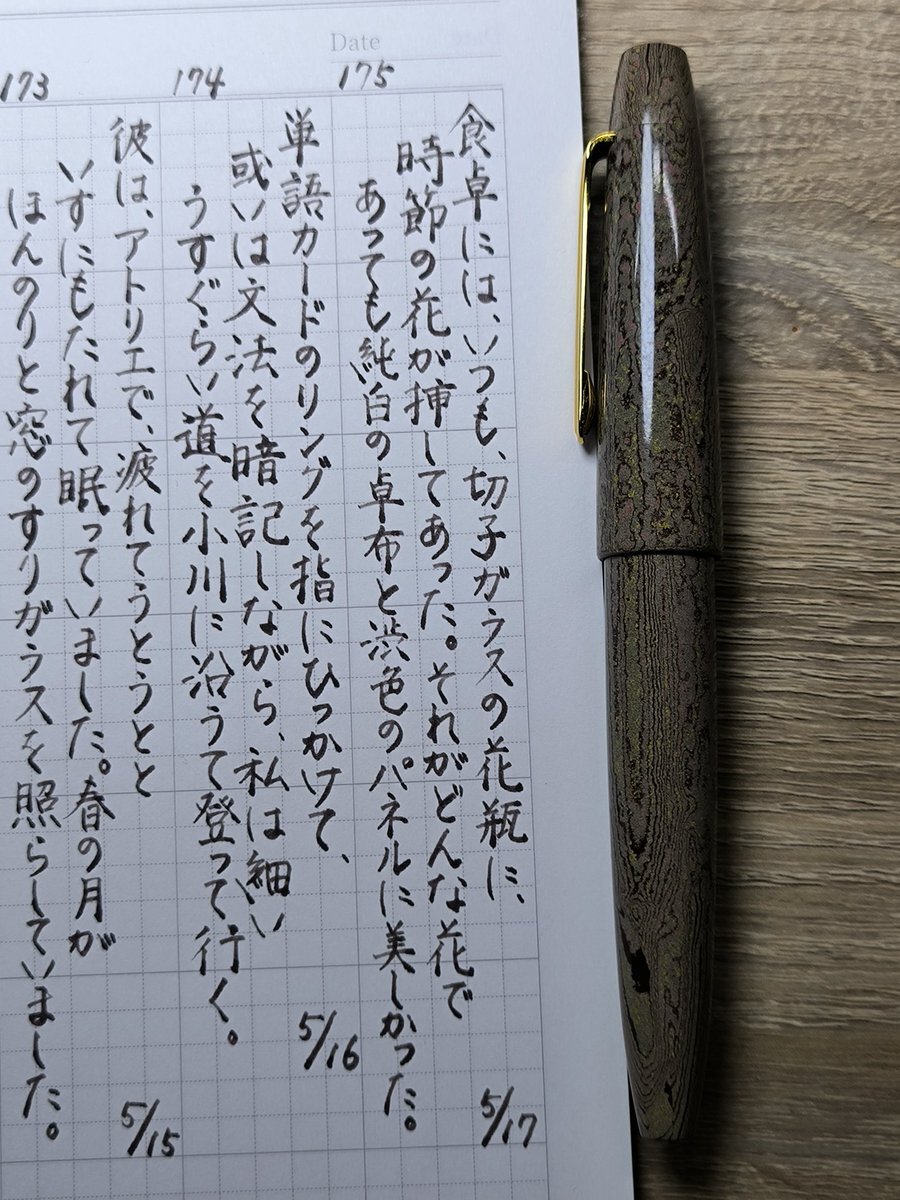 Date
175
食卓には、いつも、切子ガラスの花瓶に、
時節の花が挿してあった。それがどんな花で
あっても純白の卓布と渋色のパネルに美しかった。
5/17
174
単語カードのリングを指にひっかけて、
或いは文法を暗記しながら、私は細い
うすぐらい道を小川に沿うて登って行く。
5/16
173
彼は、アトリエで、疲れてうとうとと
いすにもたれて眠っていました。春の月が
ほんのりと窓のすりガラスを照らしていました。
5/15